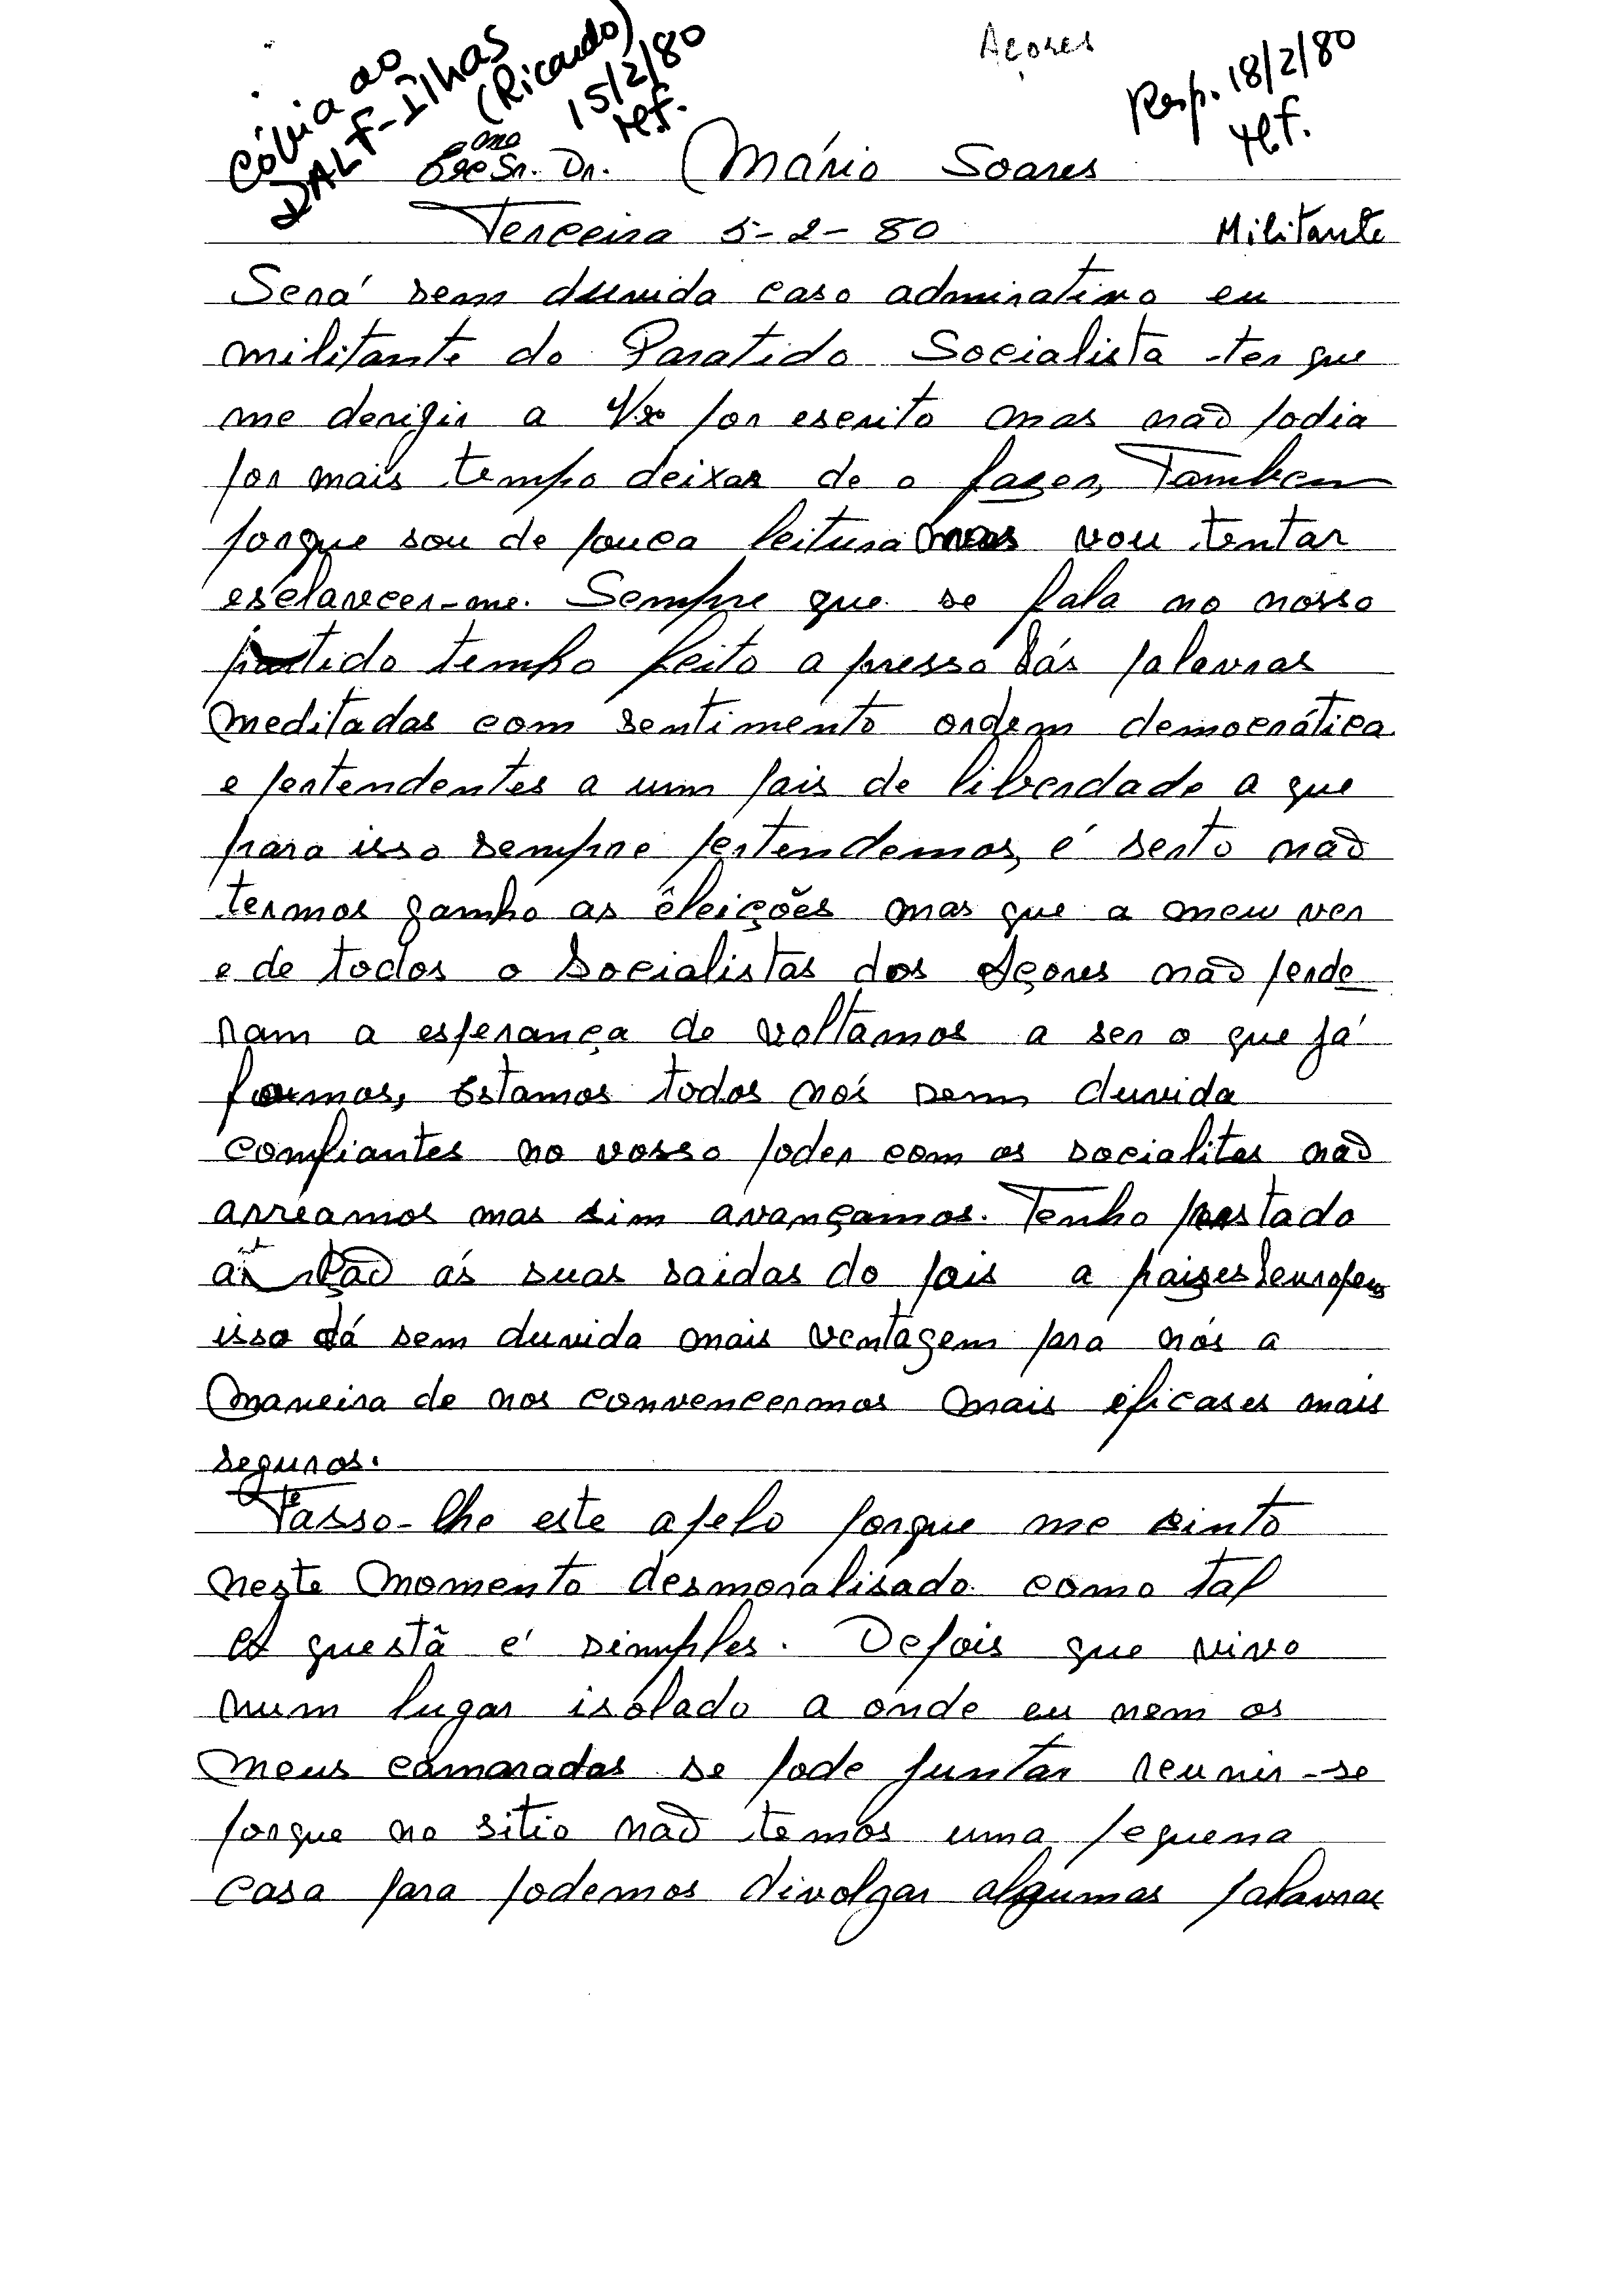 Cópia ao
DALF-Ilhas
(Ricardo)
15/2/80
Açores
Resp. 18/2/80
Exmo Sr. Dr. Mário Soares
Terceira 5-2-80 Militante
Será sem duvida caso admirativo eu
militante do Paratido Socialista ter que
me derigir a Vxa por escrito mas não podia
por mais tempo deixar de o fazer, Tambem
porque sou de pouca leitura mas vou tentar
esclarecer-me. Sempre que se fala no nosso
partido temho feito a presso dás palavras
meditadas com sentimento ordem democrática
e pertendentes a um pais de liberdade a que
para isso sempre pertendemos, é serto não
termos ganho as êleições mas que a meu ver
e de todos o Socialistas dos Açores não perde
ram a esperança de voltamos a ser o que já
foumos, Estamos todos nós sem duvida
comfiantes no vosso poder com os socialitas não
arreamos mas sim avançamos. Tenho prestado
às suas saidas do pais a paizes europeus
isso dá sem duvida mais ventagem pra nós a
maneira de nos convencermos mais eficases mais
seguros.
Passo-lhe este apelo porque me sinto
neste momento desmoralisado como tal
A questã é simples. Depois que vivo
num lugar isolado a onde eu nem os
meus camaradas se pode juntar reunir-se
porque no sitio não temos uma pequena
casa para podemos divolgar algumas palavras